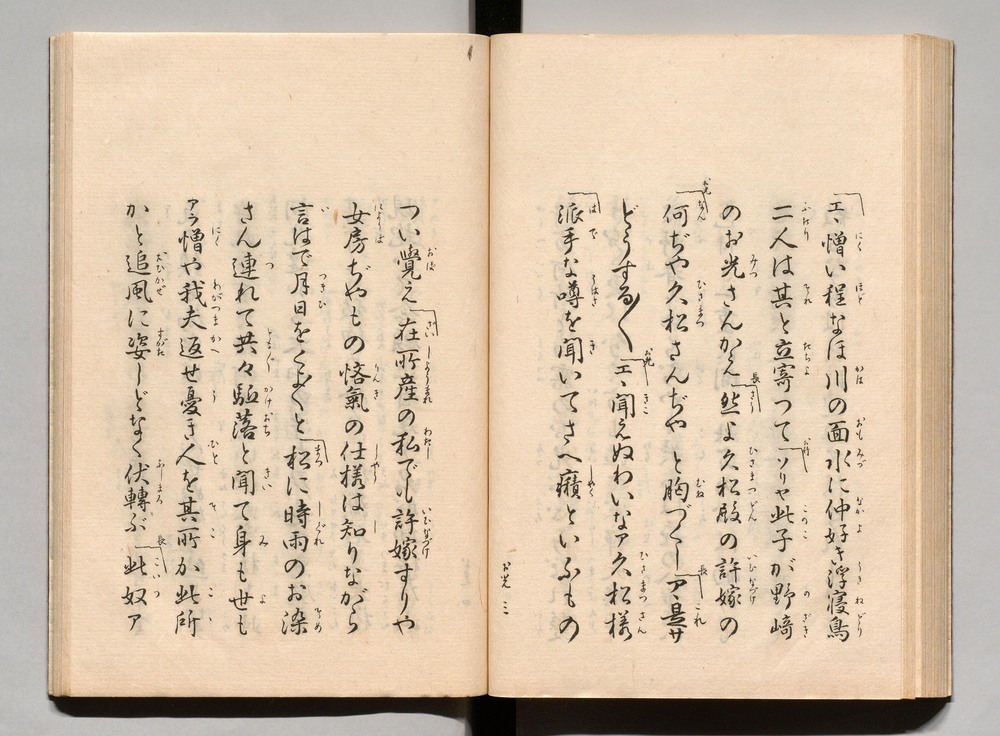 エヽ憎い程なほ川の面水に仲好き浮寝鳥
二人は其と立寄つてソリヤ此子が野崎
のお光さんかえ然よ久松殿の許嫁の
何ぢや久松さんぢや と胸づくしアヽ是サ
どうする〳〵エヽ聞えぬわいなア久松様
派手な噂を聞いてさへ癪といふもの
お光 三
つい覺え在所産の私でも許嫁すりや
女房ぢやもの悋氣の仕様は知りながら
言はで月日をくよ〳〵と松に時雨のお染
さん連れて共々駈落と聞て身も世も
アラ憎や我夫返せ憂き人を其所か此所
かと追風に姿しどなく伏轉ぶ此奴ア